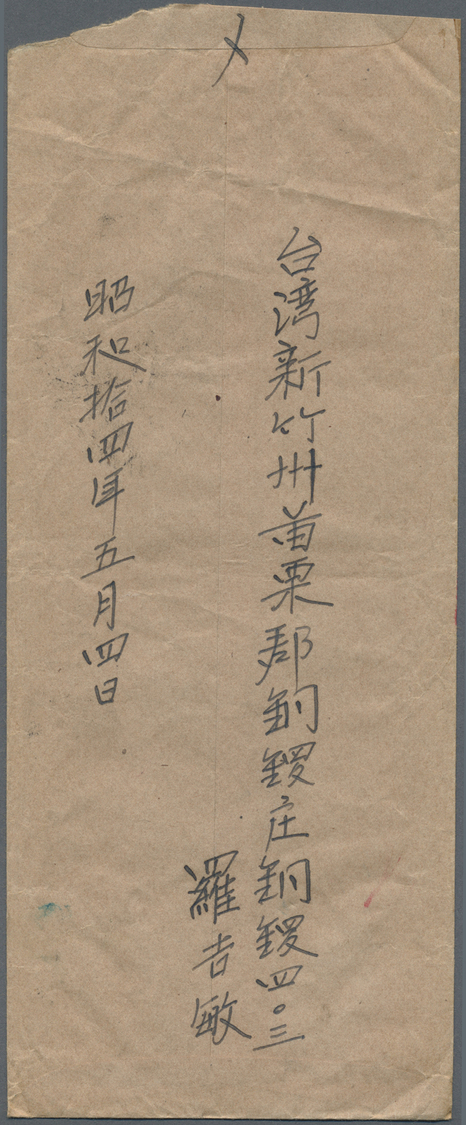 〆
台湾新竹州苗栗郡銅鑼庄銅鑼四〇三
羅吉敏
昭和拾四年五月四日